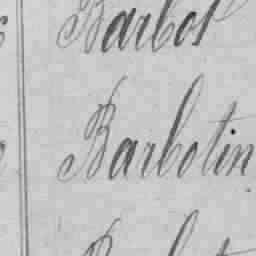 Barbot
Barbotin